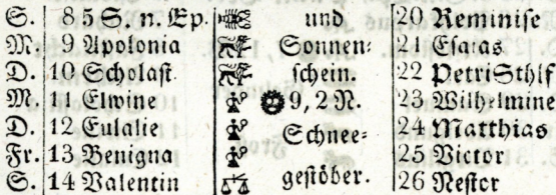 S. 8 5 S. n. Ep. und 20 Reminise
M. 9 Apolonia Sonnen- 21 Esaias
D. 10 Scholast. schein. 22 Petri Sthlf
M. 11 Elwine 9, 2 N. 23 Wilhelmine
D. 12 Eulalie Schnee- 24 Matthias
Fr. 13 Benigna 25 Victor
S. 14 Valentin gestöber. 26 Nestor